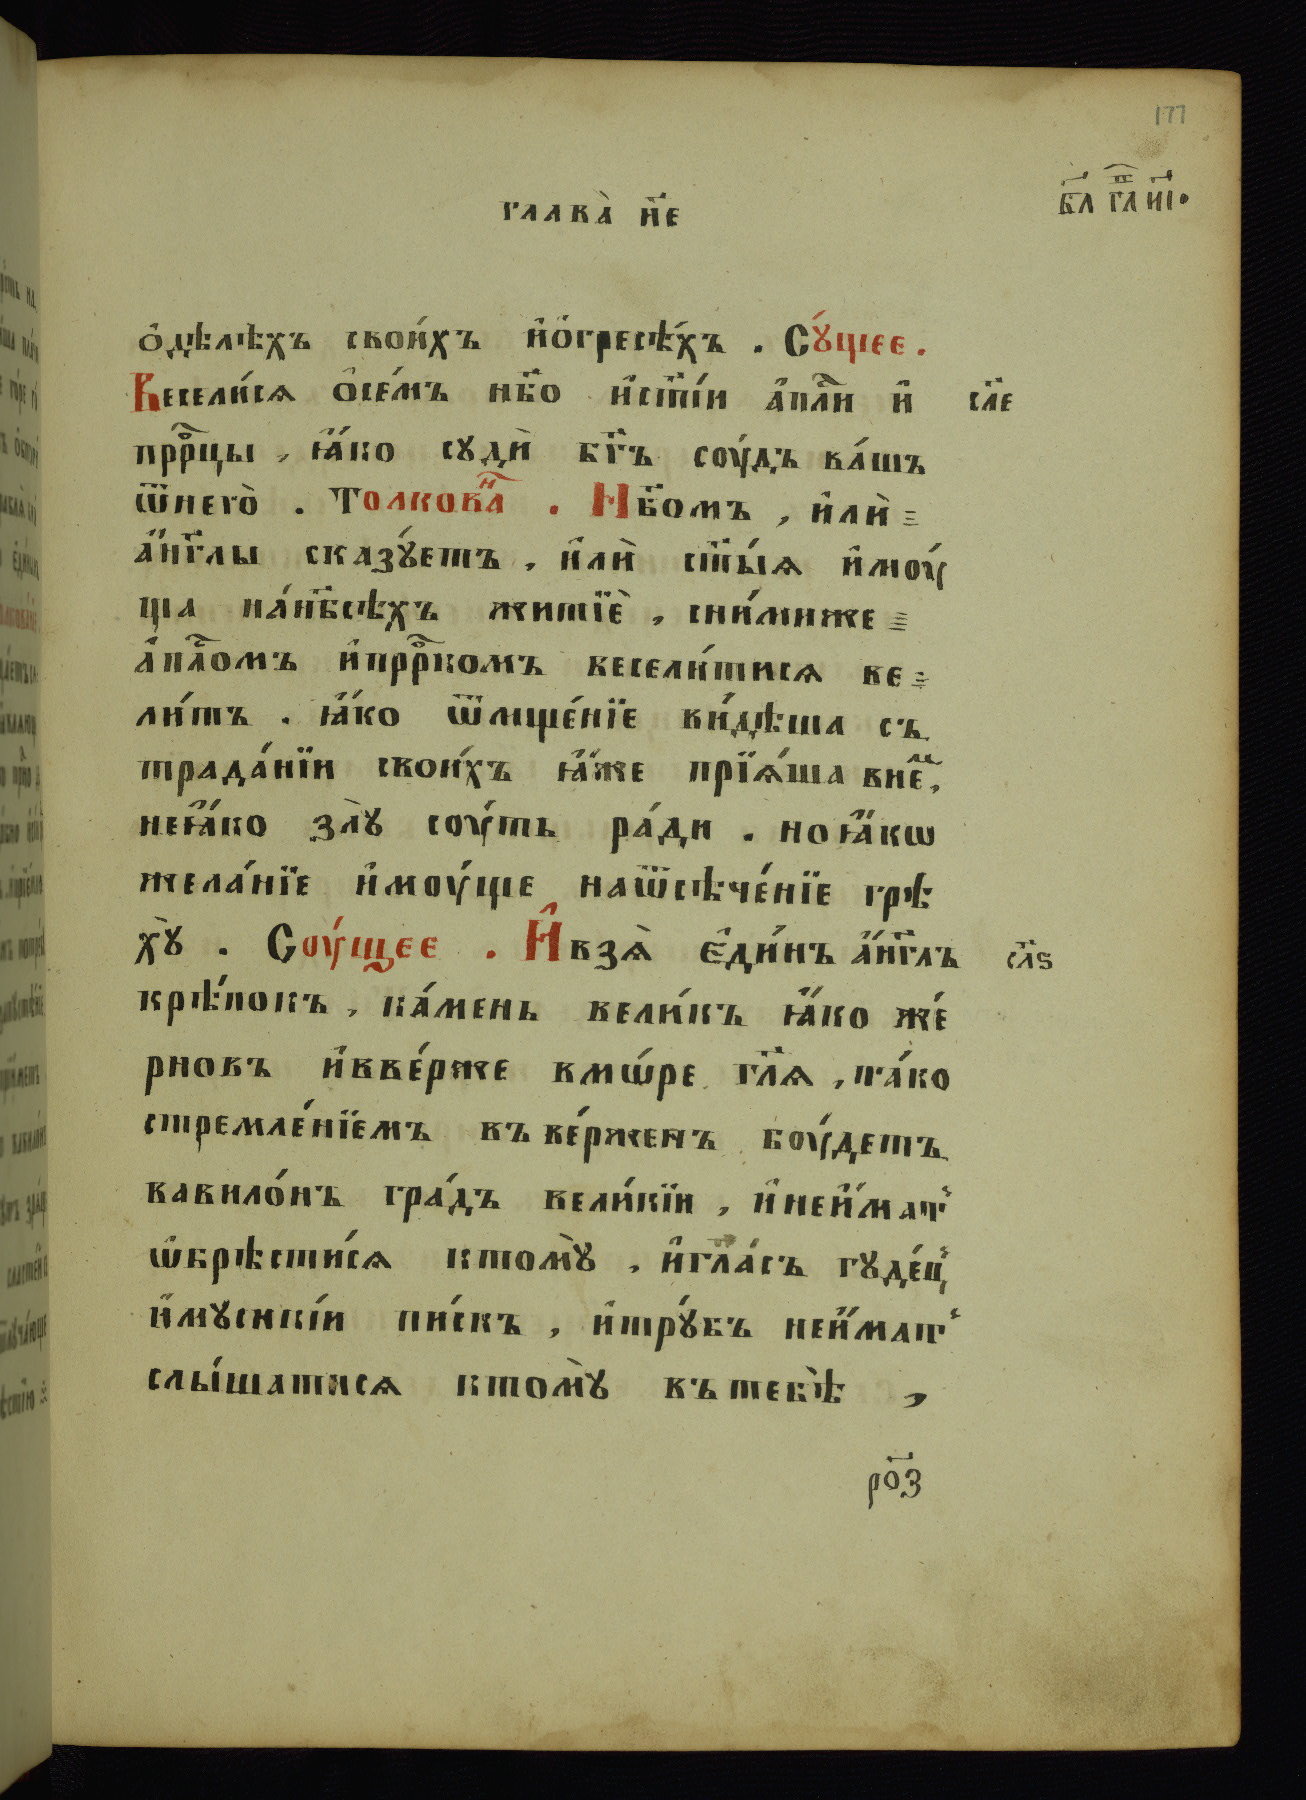 177
в҃л гл҃ и҃і·
глава̀ н҃е
ѻ҆дѣлѣхъ свои́хъ и҆ѻ҆гресѣ́хъ . Сꙋ́щее .
Весели́сѧ ѻ҆се́мъ нб҃о и҆ст҃і́и а҆пⷭ҇ли и҆ сл҃е
прⷪ҇рцы , ꙗ҆́ко сꙋди̑ бг҃ъ соу́дъ ва́шъ
ѿнего̀ . Толковаⷩ҇ . Нб҃омъ , и҆лѝ
а҆́нг҃лы сказꙋ́етъ , и҆лѝ ст҃ы́ѧ и҆моу́
ща на́нб҃сѣхъ житїѐ , сни́миже
а҆пⷭ҇ломъ и҆прⷪ҇ркомъ весели́тисѧ ве
ли́тъ . ꙗ҆́ко ѿмще́нїе ви́дѣша съ
трада́нїи свои́хъ ꙗ҆̀же прїѧ́ша внеⷨ҇,
неꙗ҆́ко злꙋ̀ соу́ть ра́ди . ноꙗ҆́кѡ
жела́нїе и҆моу́ще наѿсѣче́нїе грѣ
хꙋ̀ . Соу́щее . И҆взѧ̀ є҆ди́нъ а҆́нг҃лъ сл҃ѕ
крѣ́покъ , ка́мень вели́къ ꙗ҆́ко же́
рновъ и҆вве́рже вмѡ́ре гл҃ѧ , та́ко
стремле́нїемъ въве́рженъ боу́детъ
вавило́нъ гра́дъ вели́кїи , и҆неи҆́мат̾
ѡ҆брѣсти́сѧ ктомꙋ̀ , и҆гла́съ гꙋде́ц̾
и҆мꙋсикі́и пи́скъ , и҆трꙋ́бъ неи҆́мат̾
слы́шатисѧ ктомꙋ̀ вътебѣ̀ ,
ро҃з